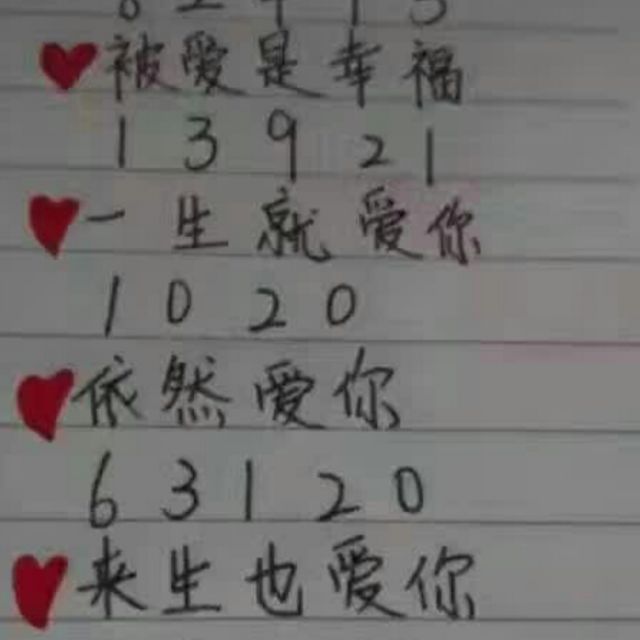 被爱是幸福
1 3 9 2 1
一生就爱你
1 0 2 0
依然爱你
6 3 1 2 0
来生也爱你